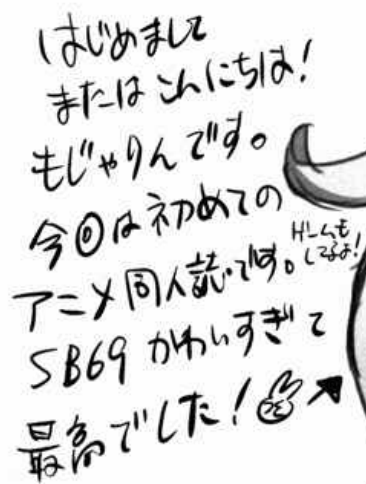 はじめまして
またはこんにちは!
もじゃりんです。
今回は初めての
アニメ同人誌です。
ゲームも
してるよ!
SB69 かわいすぎて
最高でした!